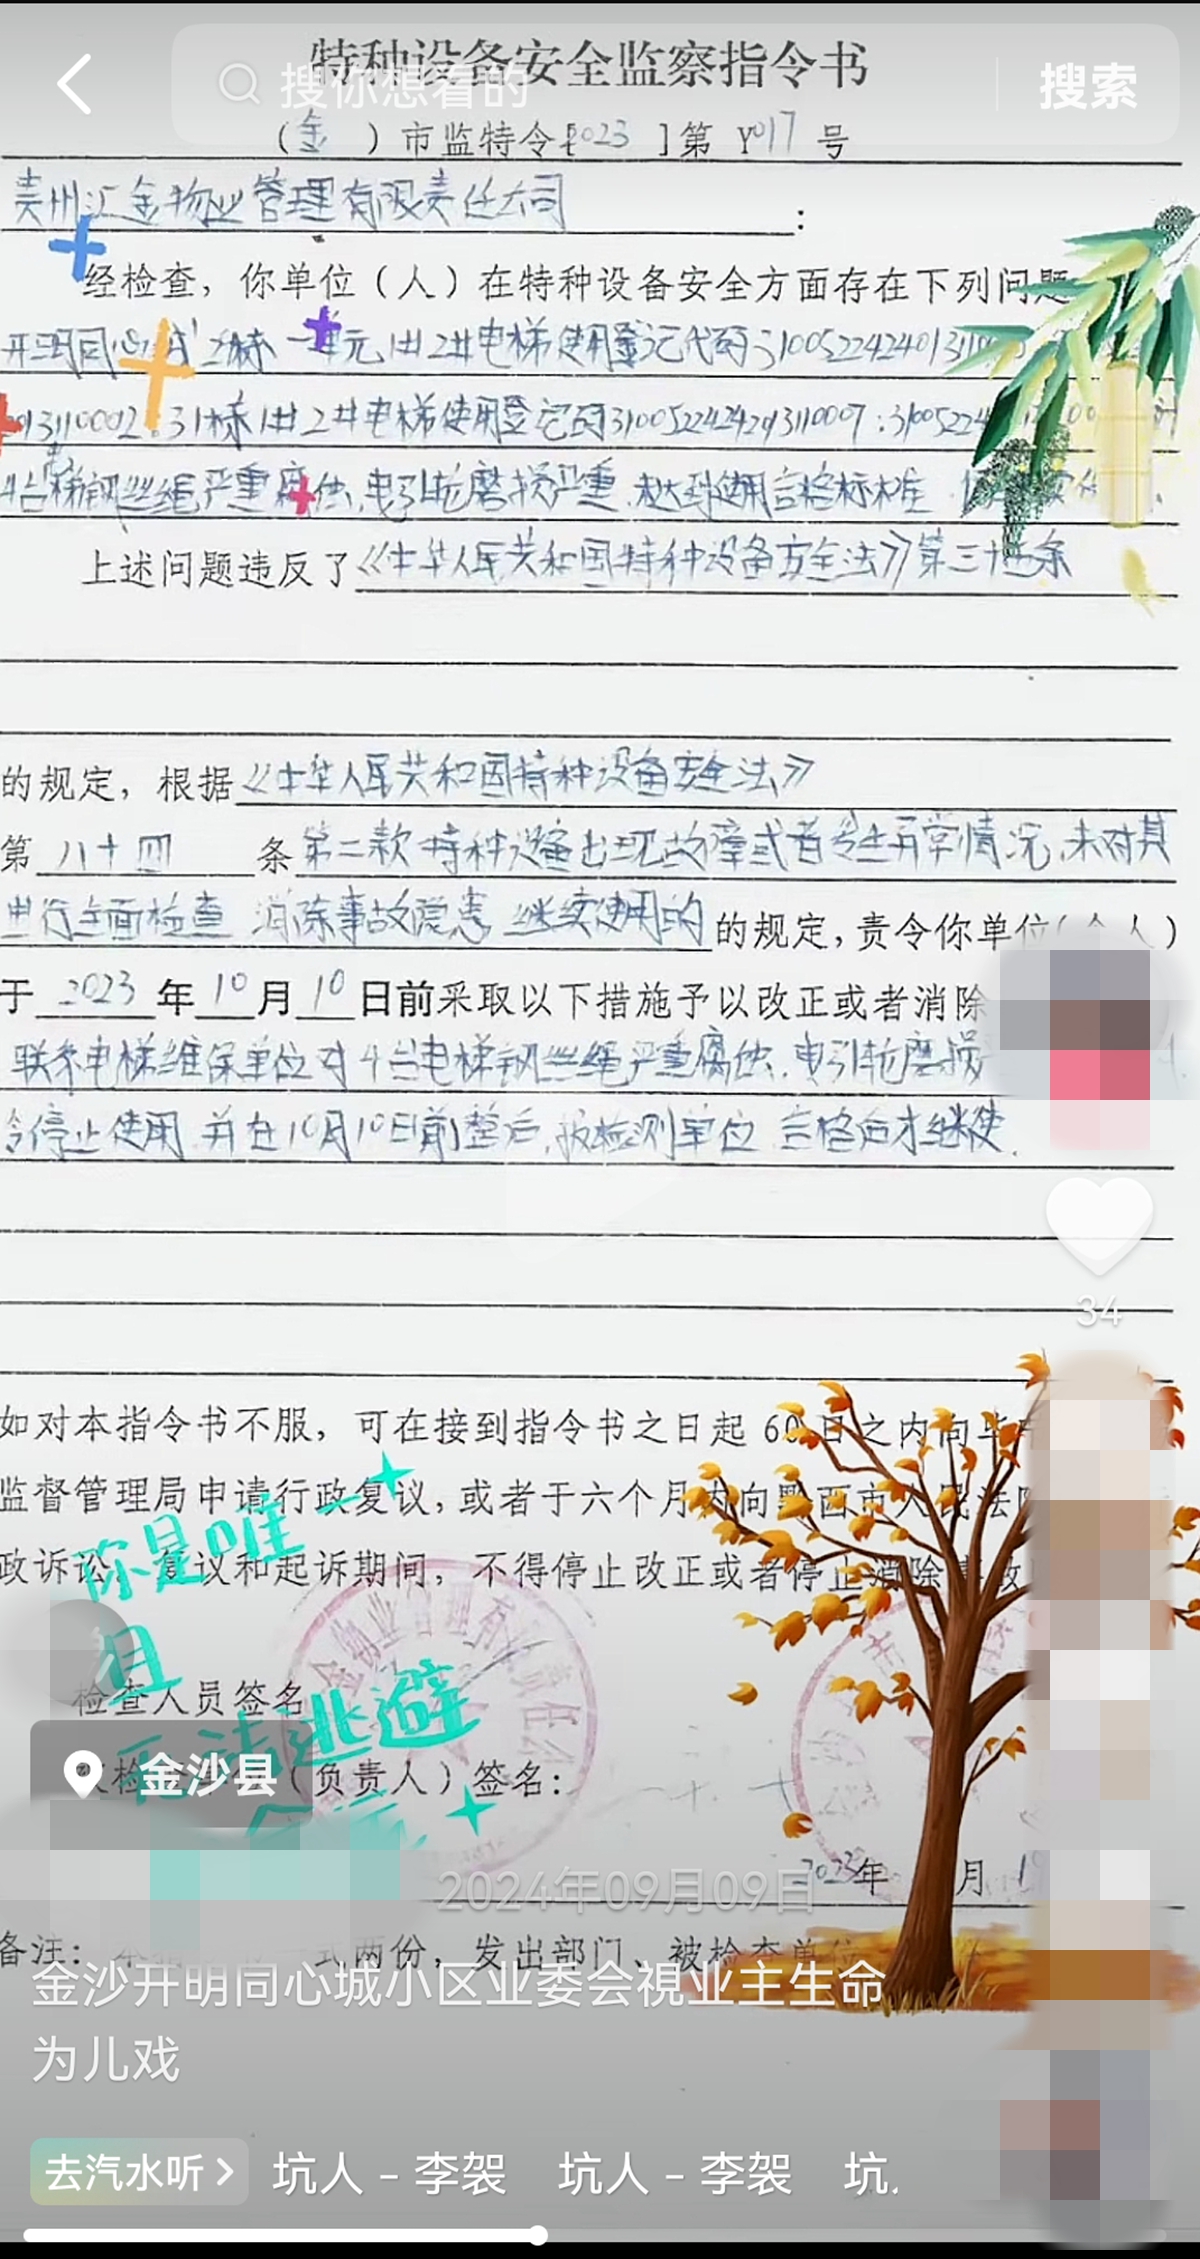 特种设备安全监察指令书
搜你想看的
搜索
（金 ）市监特令[2023 ]第 Y017 号
贵州汇金物业管理有限责任公司：
经检查，你单位（人）在特种设备安全方面存在下列问题
开明同心城 2栋一单元1#2#电梯使用登记代码
:31栋1#2#电梯使用登记码
4台梯钢丝绳严重腐蚀,曳引轮磨损严重.
上述问题违反了《中华人民共和国特种设备安全法》第三十 条
的规定，根据《中华人民共和国特种设备安全法》
第 八十四 条 第二款 特种设备出现故障或者发生异常情况,未对其
进行全面检查 消除事故隐患 继续使用的 的规定,责令你单位(个人)
于 2023 年 10 月 10 日前采取以下措施予以改正或者消除
联系电梯维保单位对4台电梯钢丝绳严重腐蚀.曳引轮磨损
停止使用 并在10月10日前整 后,报检测单位 合格后才继使.
如对本指令书不服，可在接到指令书之日起 60 日之内向毕
监督管理局申请行政复议，或者于六个月内向黔西市人民法
政诉讼。复议和起诉期间，不得停止改正或者停止消除
你是唯一
且
检查人员签名
无法逃避
金沙县
（负责人）签名：
2023年 月
2024年09月09日
备注： 式两份，发出部门、被检查单位
金沙开明同心城小区业委会視业主生命
为儿戏
34
去汽水听 坑人 - 李袈 坑人 - 李袈 坑